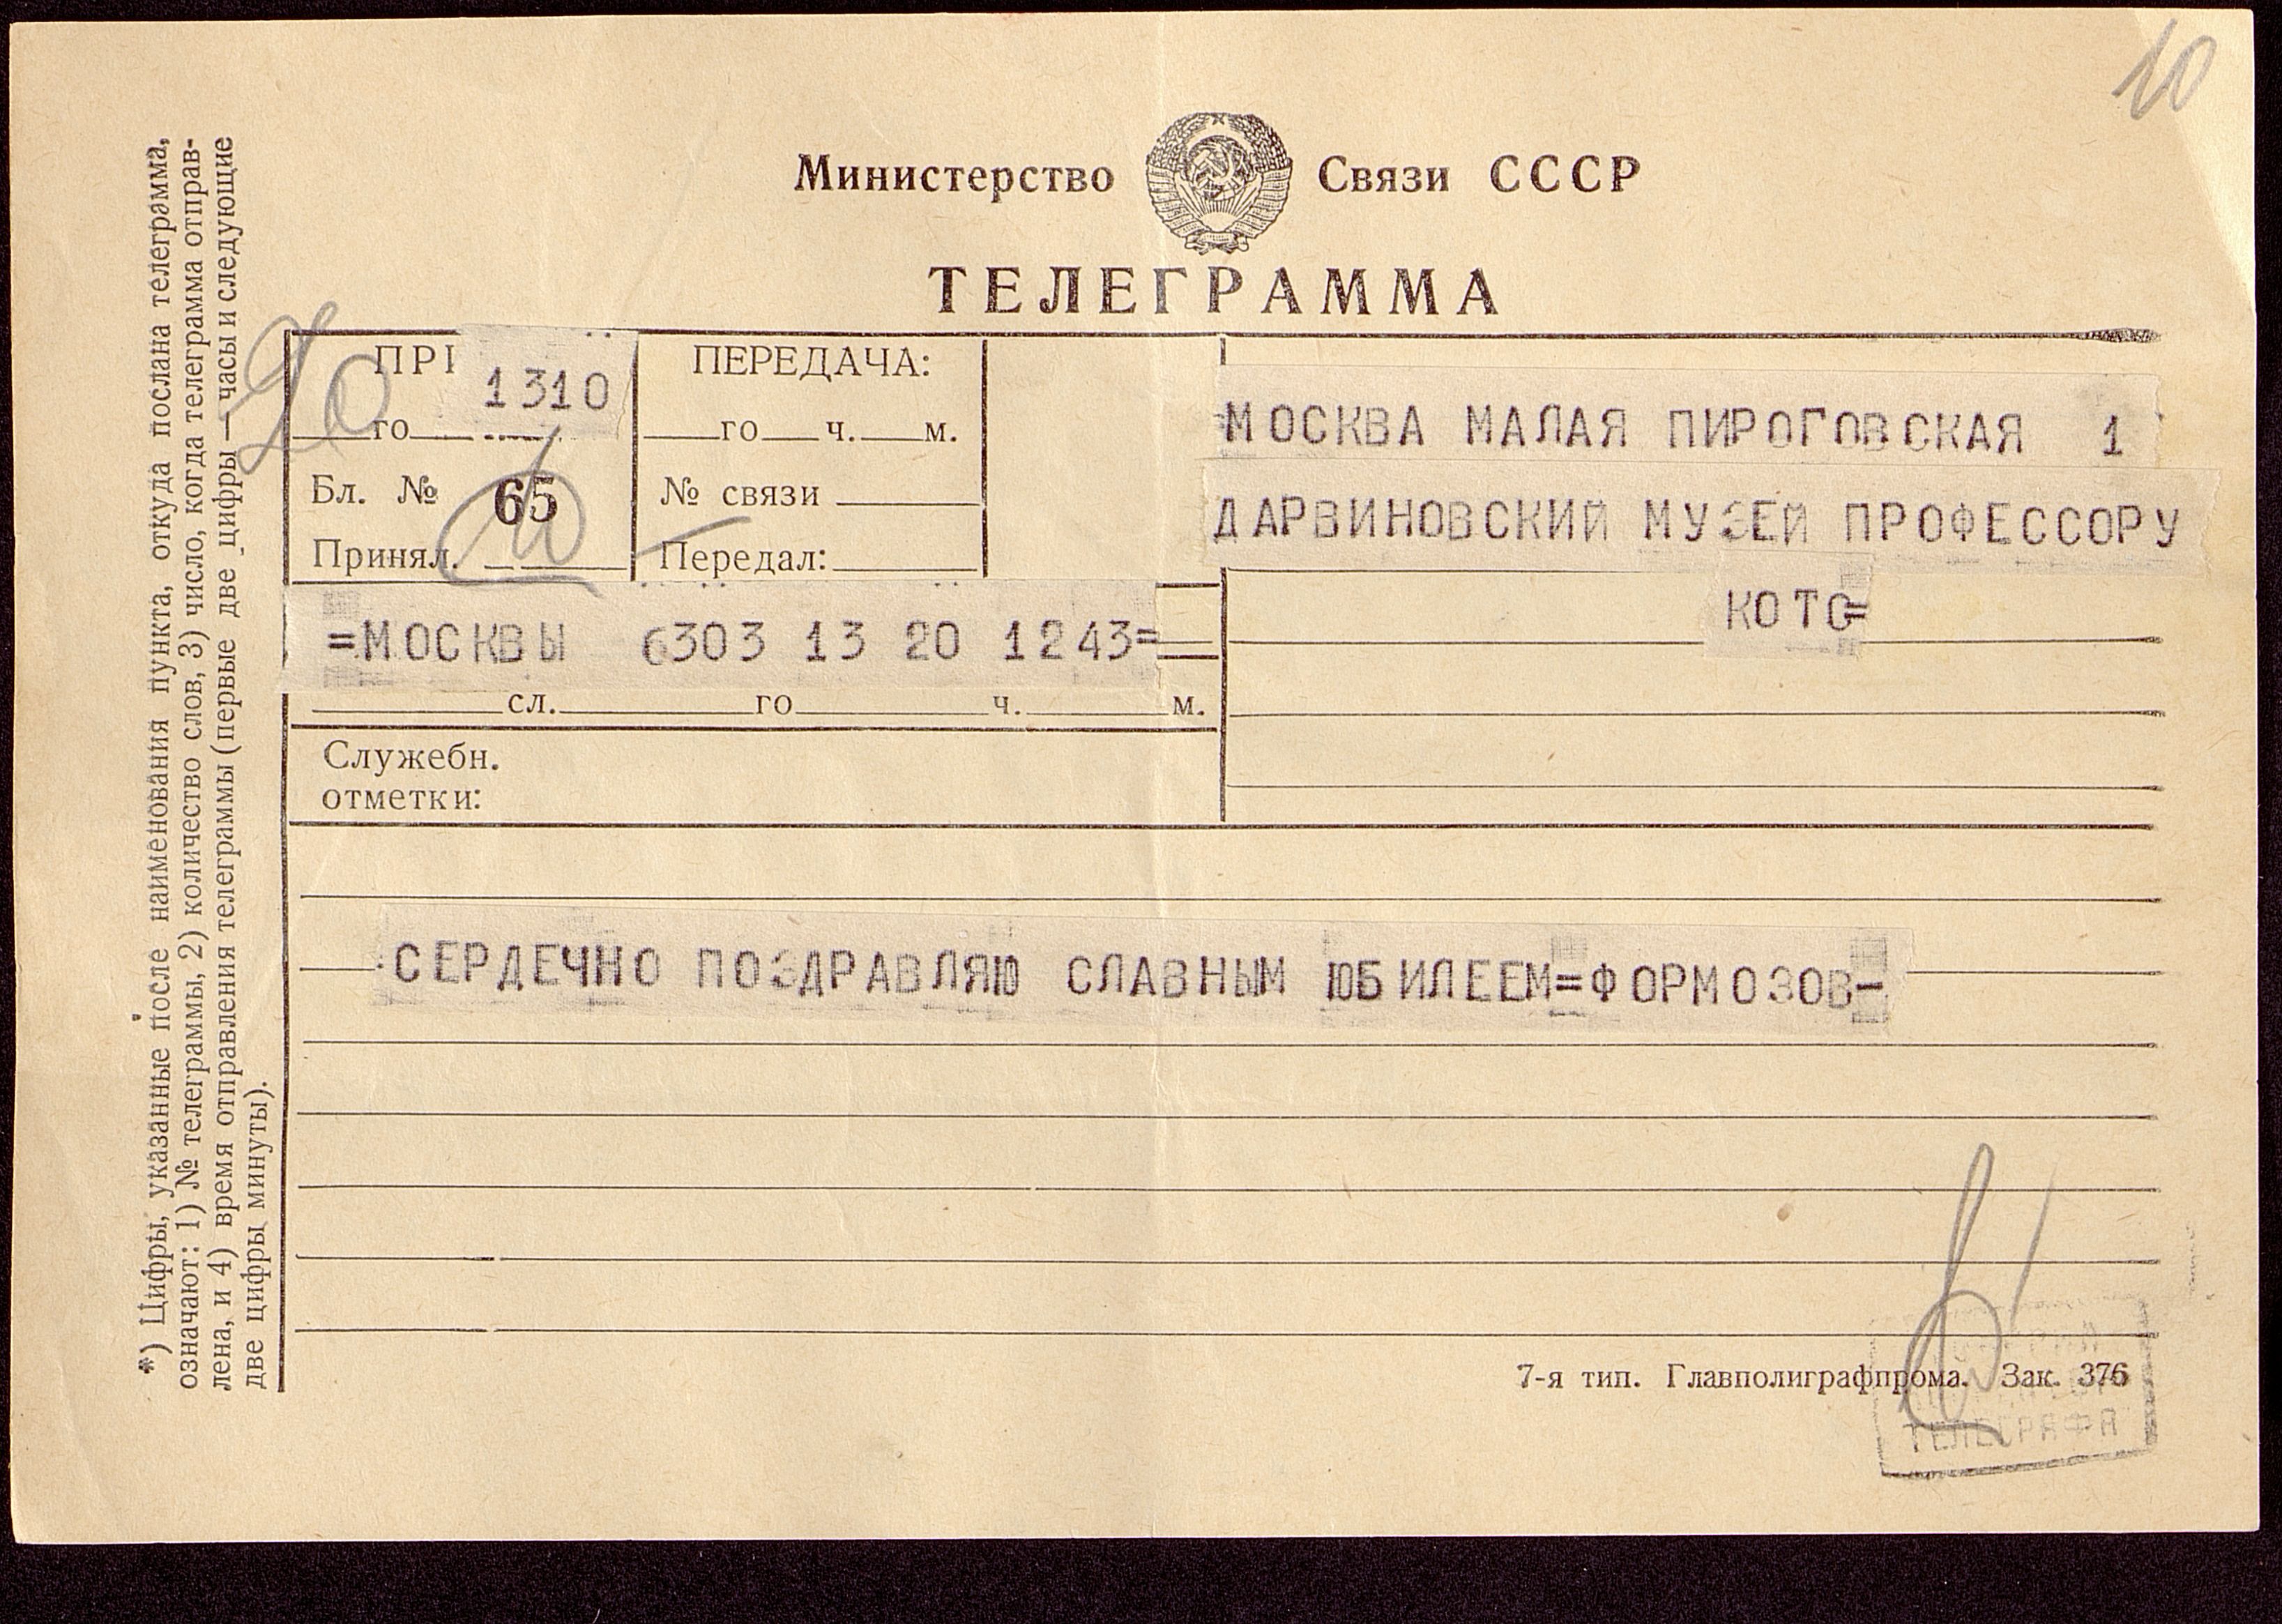 10
Министерство Связи СССР
ТЕЛЕГРАММА
*) Цифры, указанные после наименования пункта, откуда послана телеграмма,
означают: 1) № телеграммы, 2) количество слов, 3) число, когда телеграмма отправ-
лена, и 4) время отправления телеграммы (первые две цифры — часы и следующие
две цифры минуты).
20
1310
го
Бл. № 65
Принял.
ПЕРЕДАЧА:
го ч. м.
№ связи
Передал:
МОСКВА МАЛАЯ ПИРОГОВСКАЯ 1
ДАРВИНОВСКИЙ МУЗЕЙ ПРОФЕССОРУ
КОТС=
=МОСКВЫ 6303 13 20 1243=
сл. го ч. м.
Служебн.
отметки:
СЕРДЕЧНО ПОЗДРАВЛЯЮ СЛАВНЫМ ЮБИЛЕЕМ=ФОРМОЗОВ-
7-я тип. Главполиграфпрома. Зак. 376
ТЕЛЕГРАФА